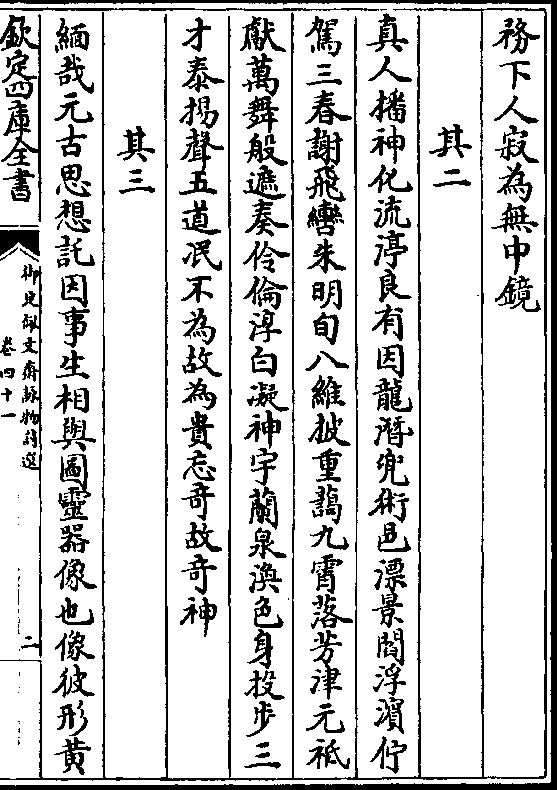 務下人寂為無中鏡
其二
真人播神化流渟良有因龍潛兜術邑漂景閻浮濵佇
駕三春謝飛轡朱明旬八維披重藹九霄落芳津元祇
獻萬舞般遮奏伶倫淳白凝神宇蘭泉渙色身投步三
才泰揚聲五道泯不為故為貴忘奇故奇神
其三
緬哉元古思想託因事生相與圖靈器像也像彼形黄
欽定四庫全書
御定佩文齋詠物詩選
卷四十一
二